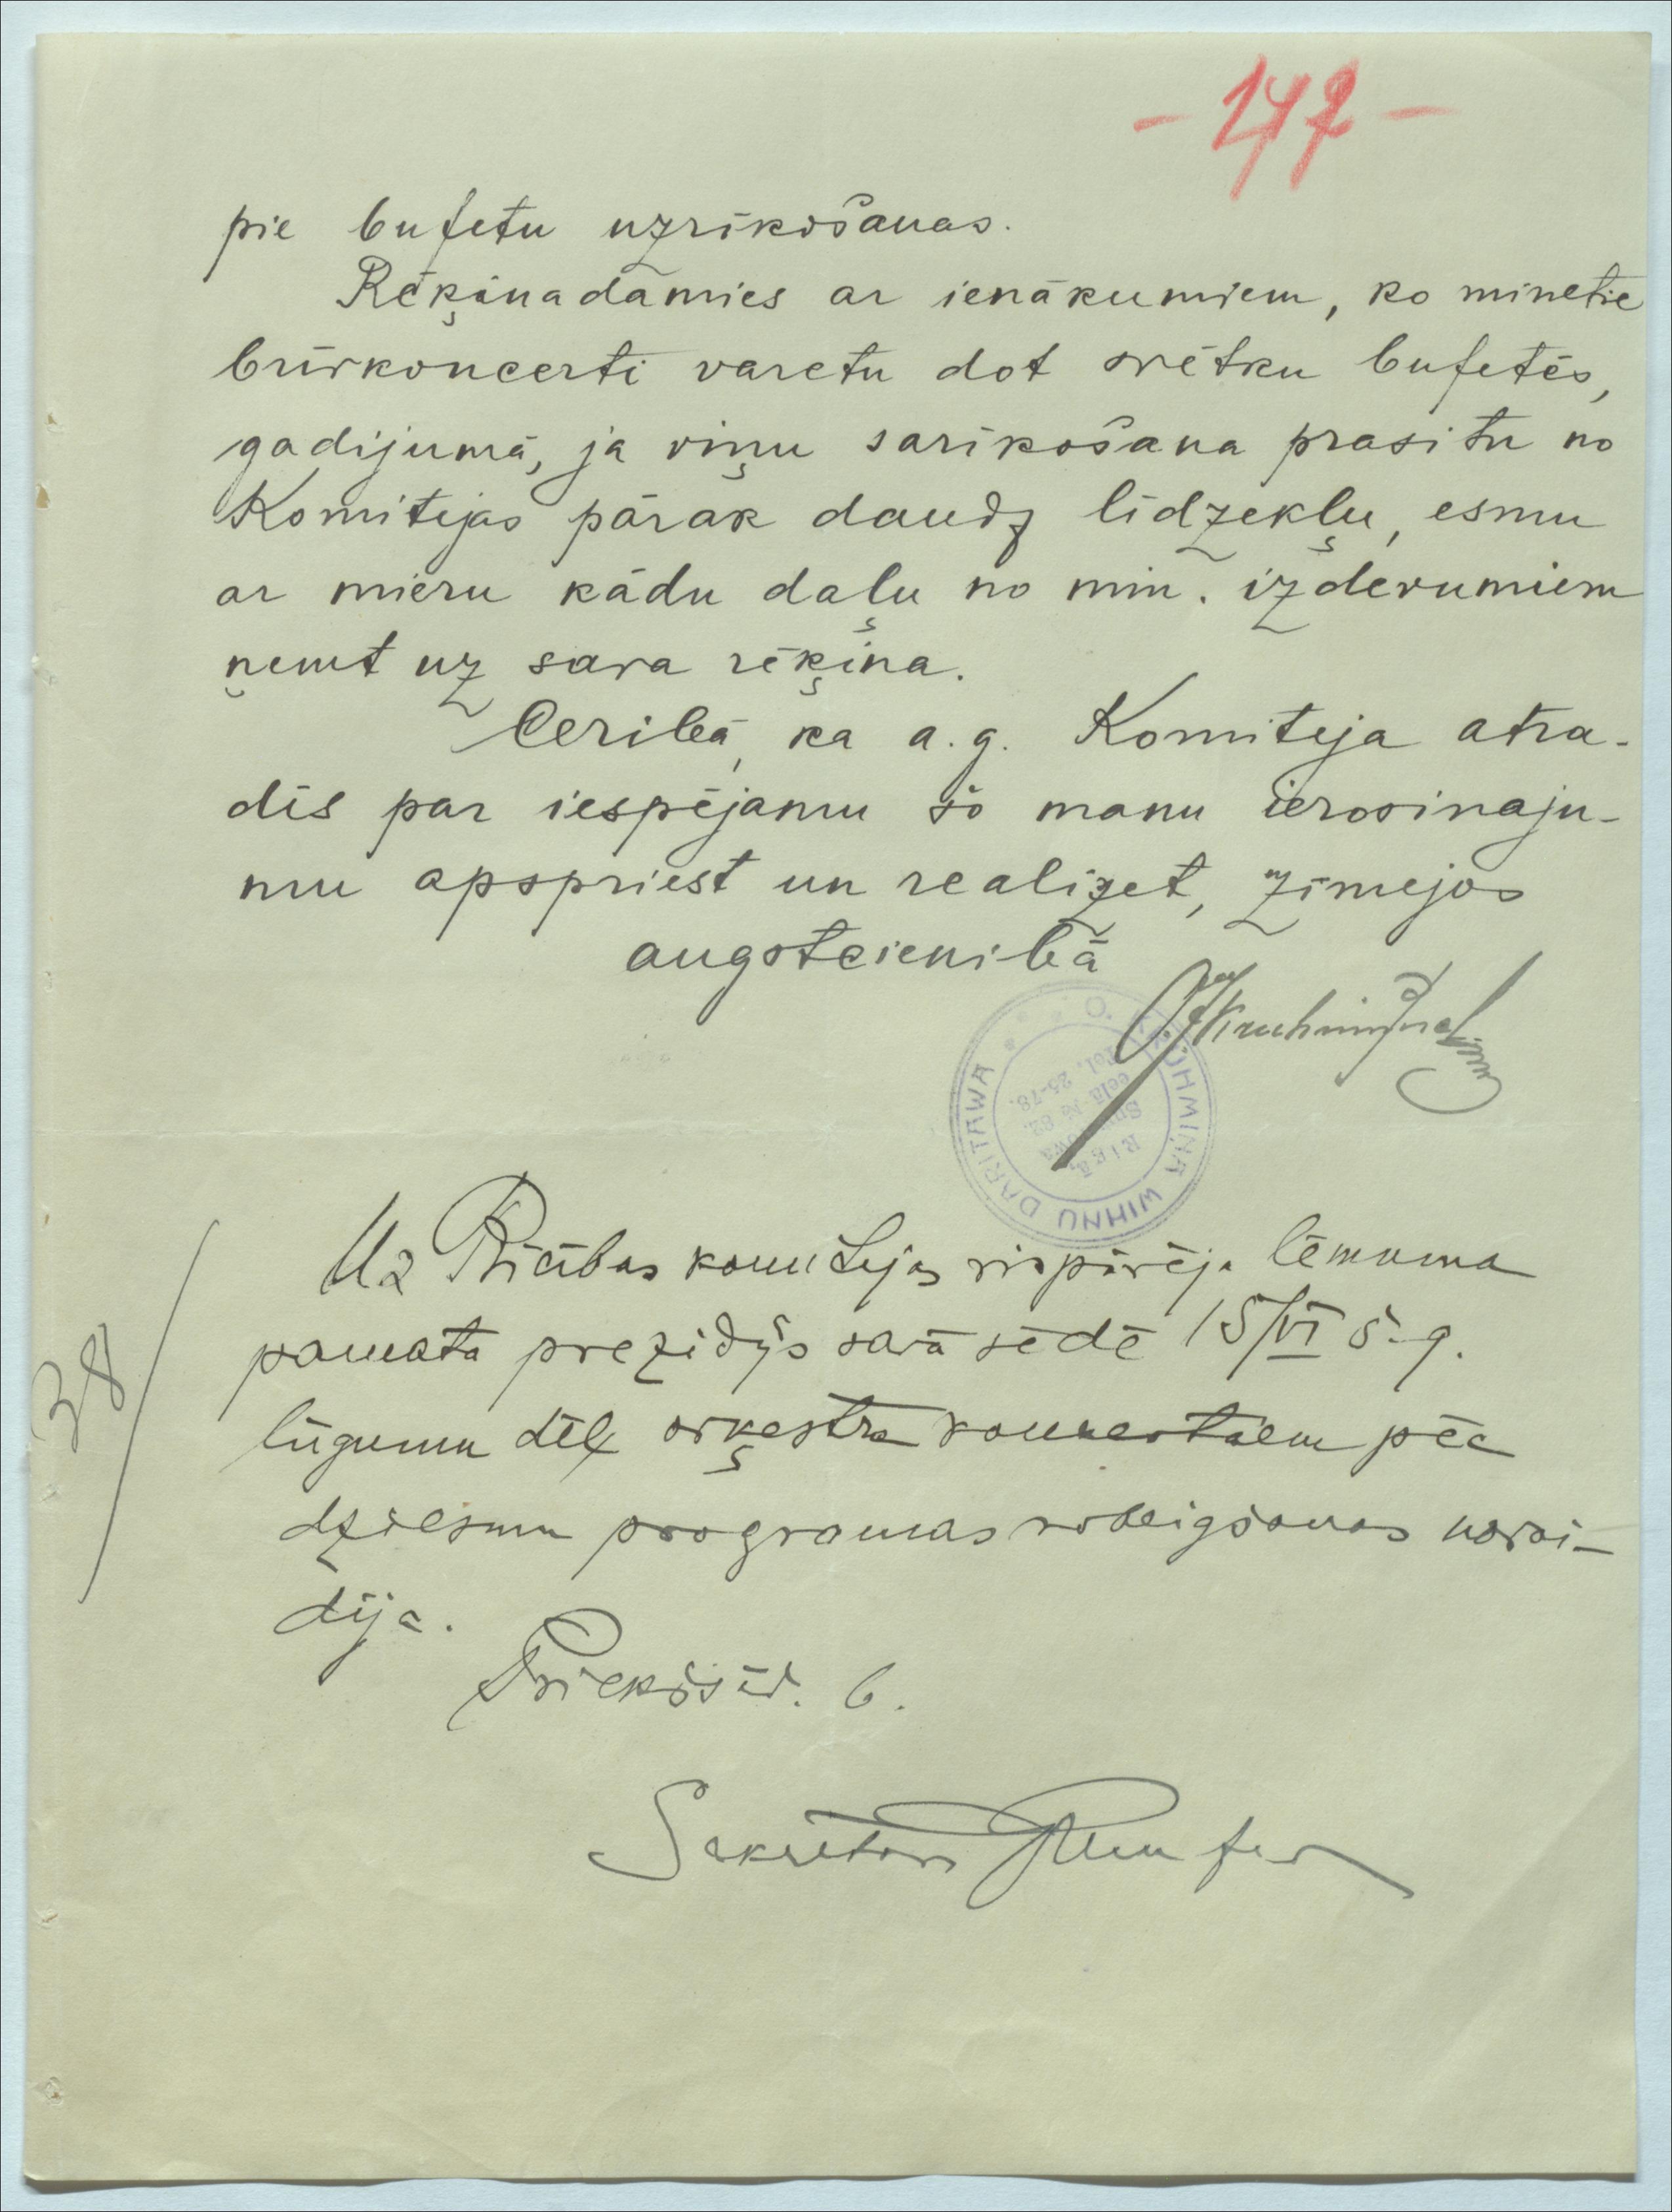 - 147 -
pie bufetu uzrīkošanas.
Rēķinadamies ar ienākumiem, ko minetie
brīvkoncerti varetu dot svētku bufetēs,
gadijumā, ja viņu sarīkošana prasitu no
Komitejas pārāk daudz līdzekļu, esmu
ar mieru kādu daļu no min. izdevumiem
ņemt uz sava rēķina.
Ceribā, ka a. g. Komiteja atra-
dīs par iespējamu šo manu ierosinaju-
mu apspriest un realizet, zīmejos
augstcienibā
O. KRUHMIŅA WIHNU DARITAWA
Rīgā,
eelā № 82.
Tel. 23-78.
Uz Rīcības komitejas vispārēja lēmuma
pamata prezidijs savā sēdē 15/VI š. g.
lūgumu dēļ orķestra koncertiem pēc
dziesmu programas nobeigšanas norai-
dīja.
38/
Priekšsēd. b.
Sekretārs